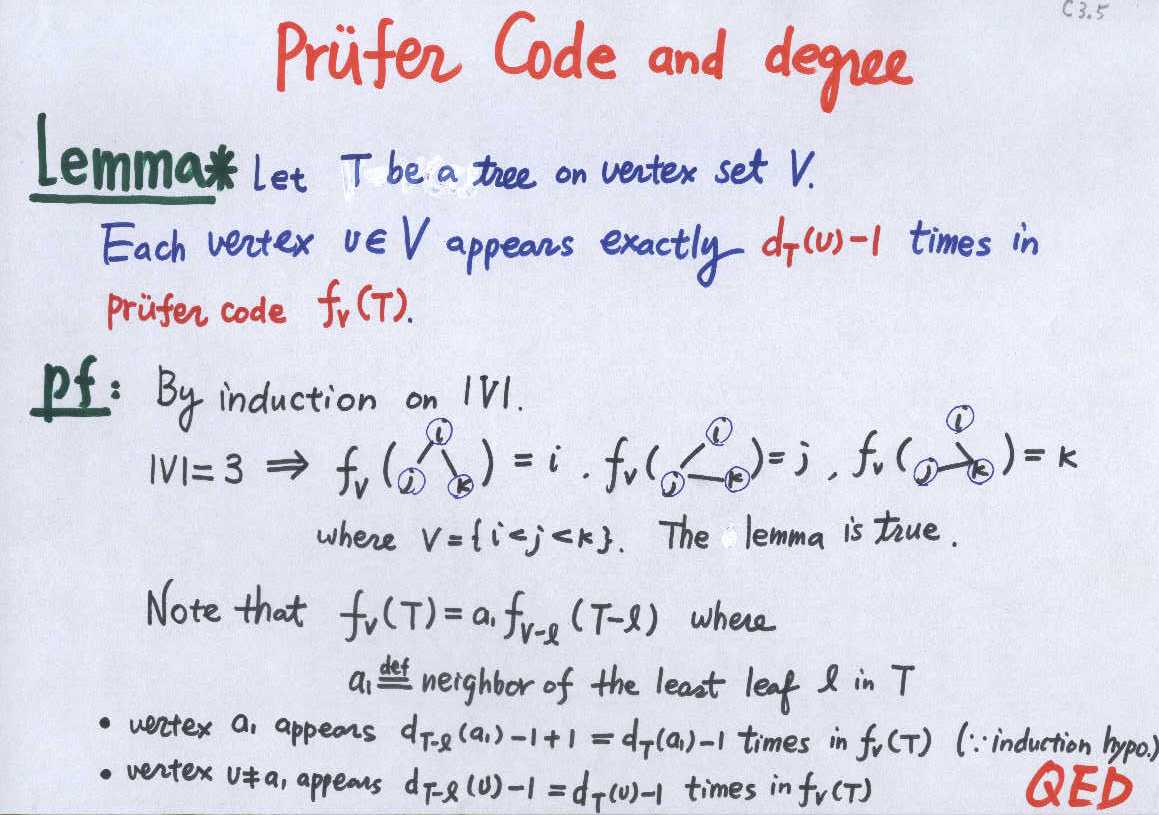 C3.5
Prüfer Code and degree
Lemma* Let T be a tree on vertex set V.
Each vertex v ∈ V appears exactly d_T(v)-1 times in
prüfer code f_V(T).
pf: By induction on |V|.
|V|=3 ⇒ f_V( i j k ) = i , f_V( i j k ) = j , f_V( i j k ) = k
where V={i<j<k}. The lemma is true.
Note that f_V(T)=a₁ f_{V-ℓ}(T-ℓ) where
a₁ ≝ neighbor of the least leaf ℓ in T
• vertex a₁ appears d_{T-ℓ}(a₁)-1+1 = d_T(a₁)-1 times in f_V(T) (∵ induction hypo.)
• vertex v≠a₁ appears d_{T-ℓ}(v)-1 = d_T(v)-1 times in f_V(T)
QED